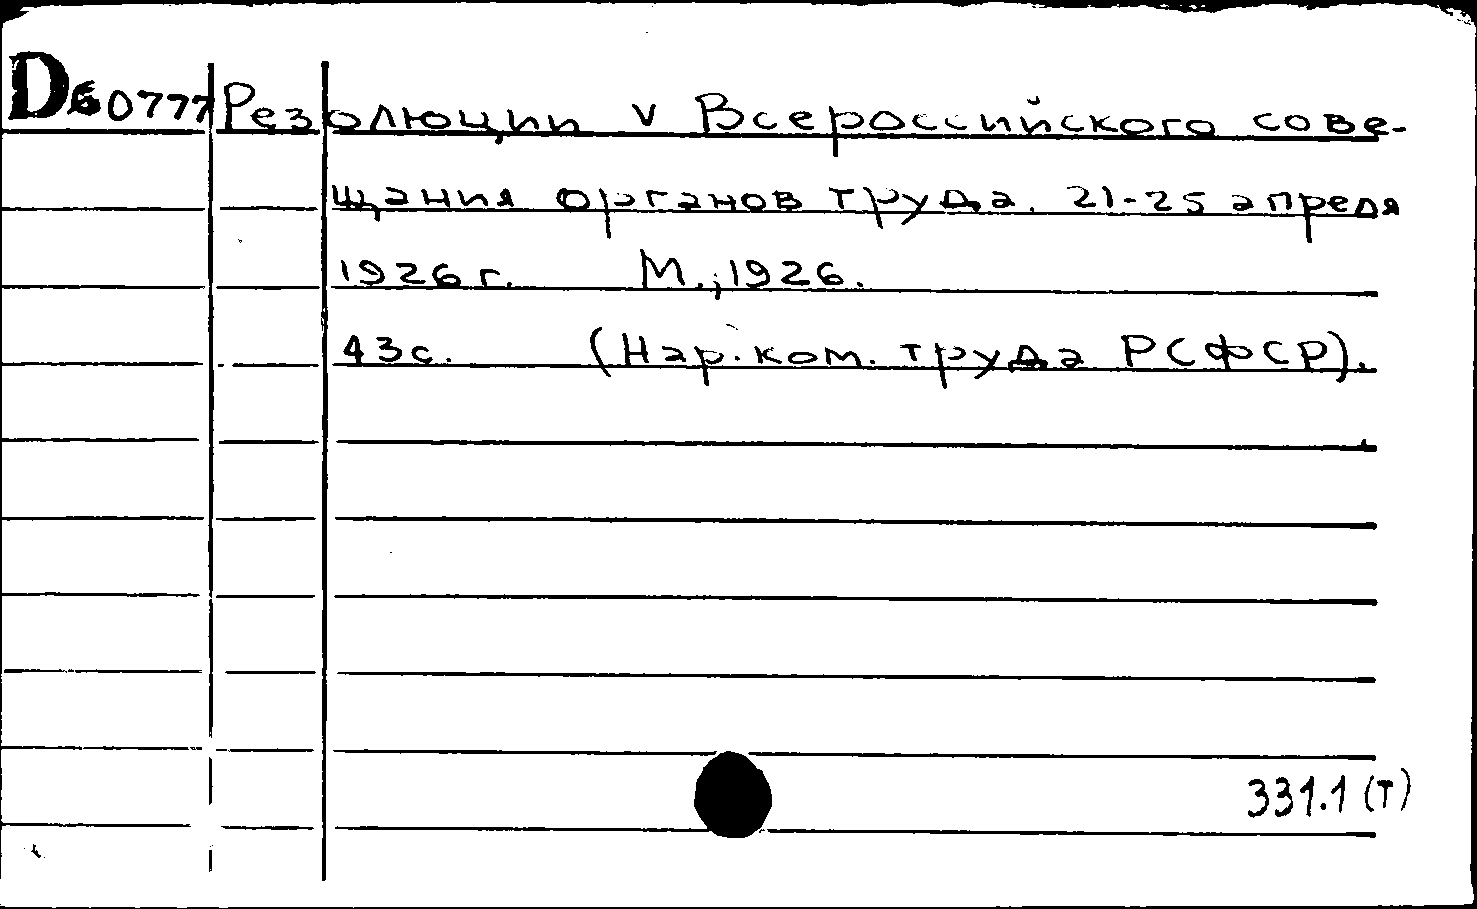 D60777 Резолюции V Всероссийского сове-
щания органов труда. 21-25 апреля
1926 г. М., 1926.
43с. (Нар. ком. труда РСФСР).
331.1 (Т)